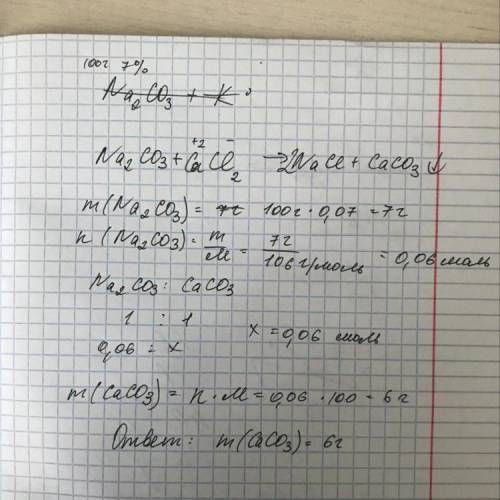 100г 7%
Na2CO3 + K
Na2CO3 + CaCl2 → 2NaCl + CaCO3 ↓
+2 −
m(Na2CO3) = 7г 100г · 0,07 = 7г
n(Na2CO3) = m/M = 7г/106г/моль = 0,06 моль
Na2CO3 : CaCO3
1 : 1
0,06 = x x = 0,06 моль
m(CaCO3) = n · M = 0,06 · 100 = 6г
Ответ: m(CaCO3) = 6г